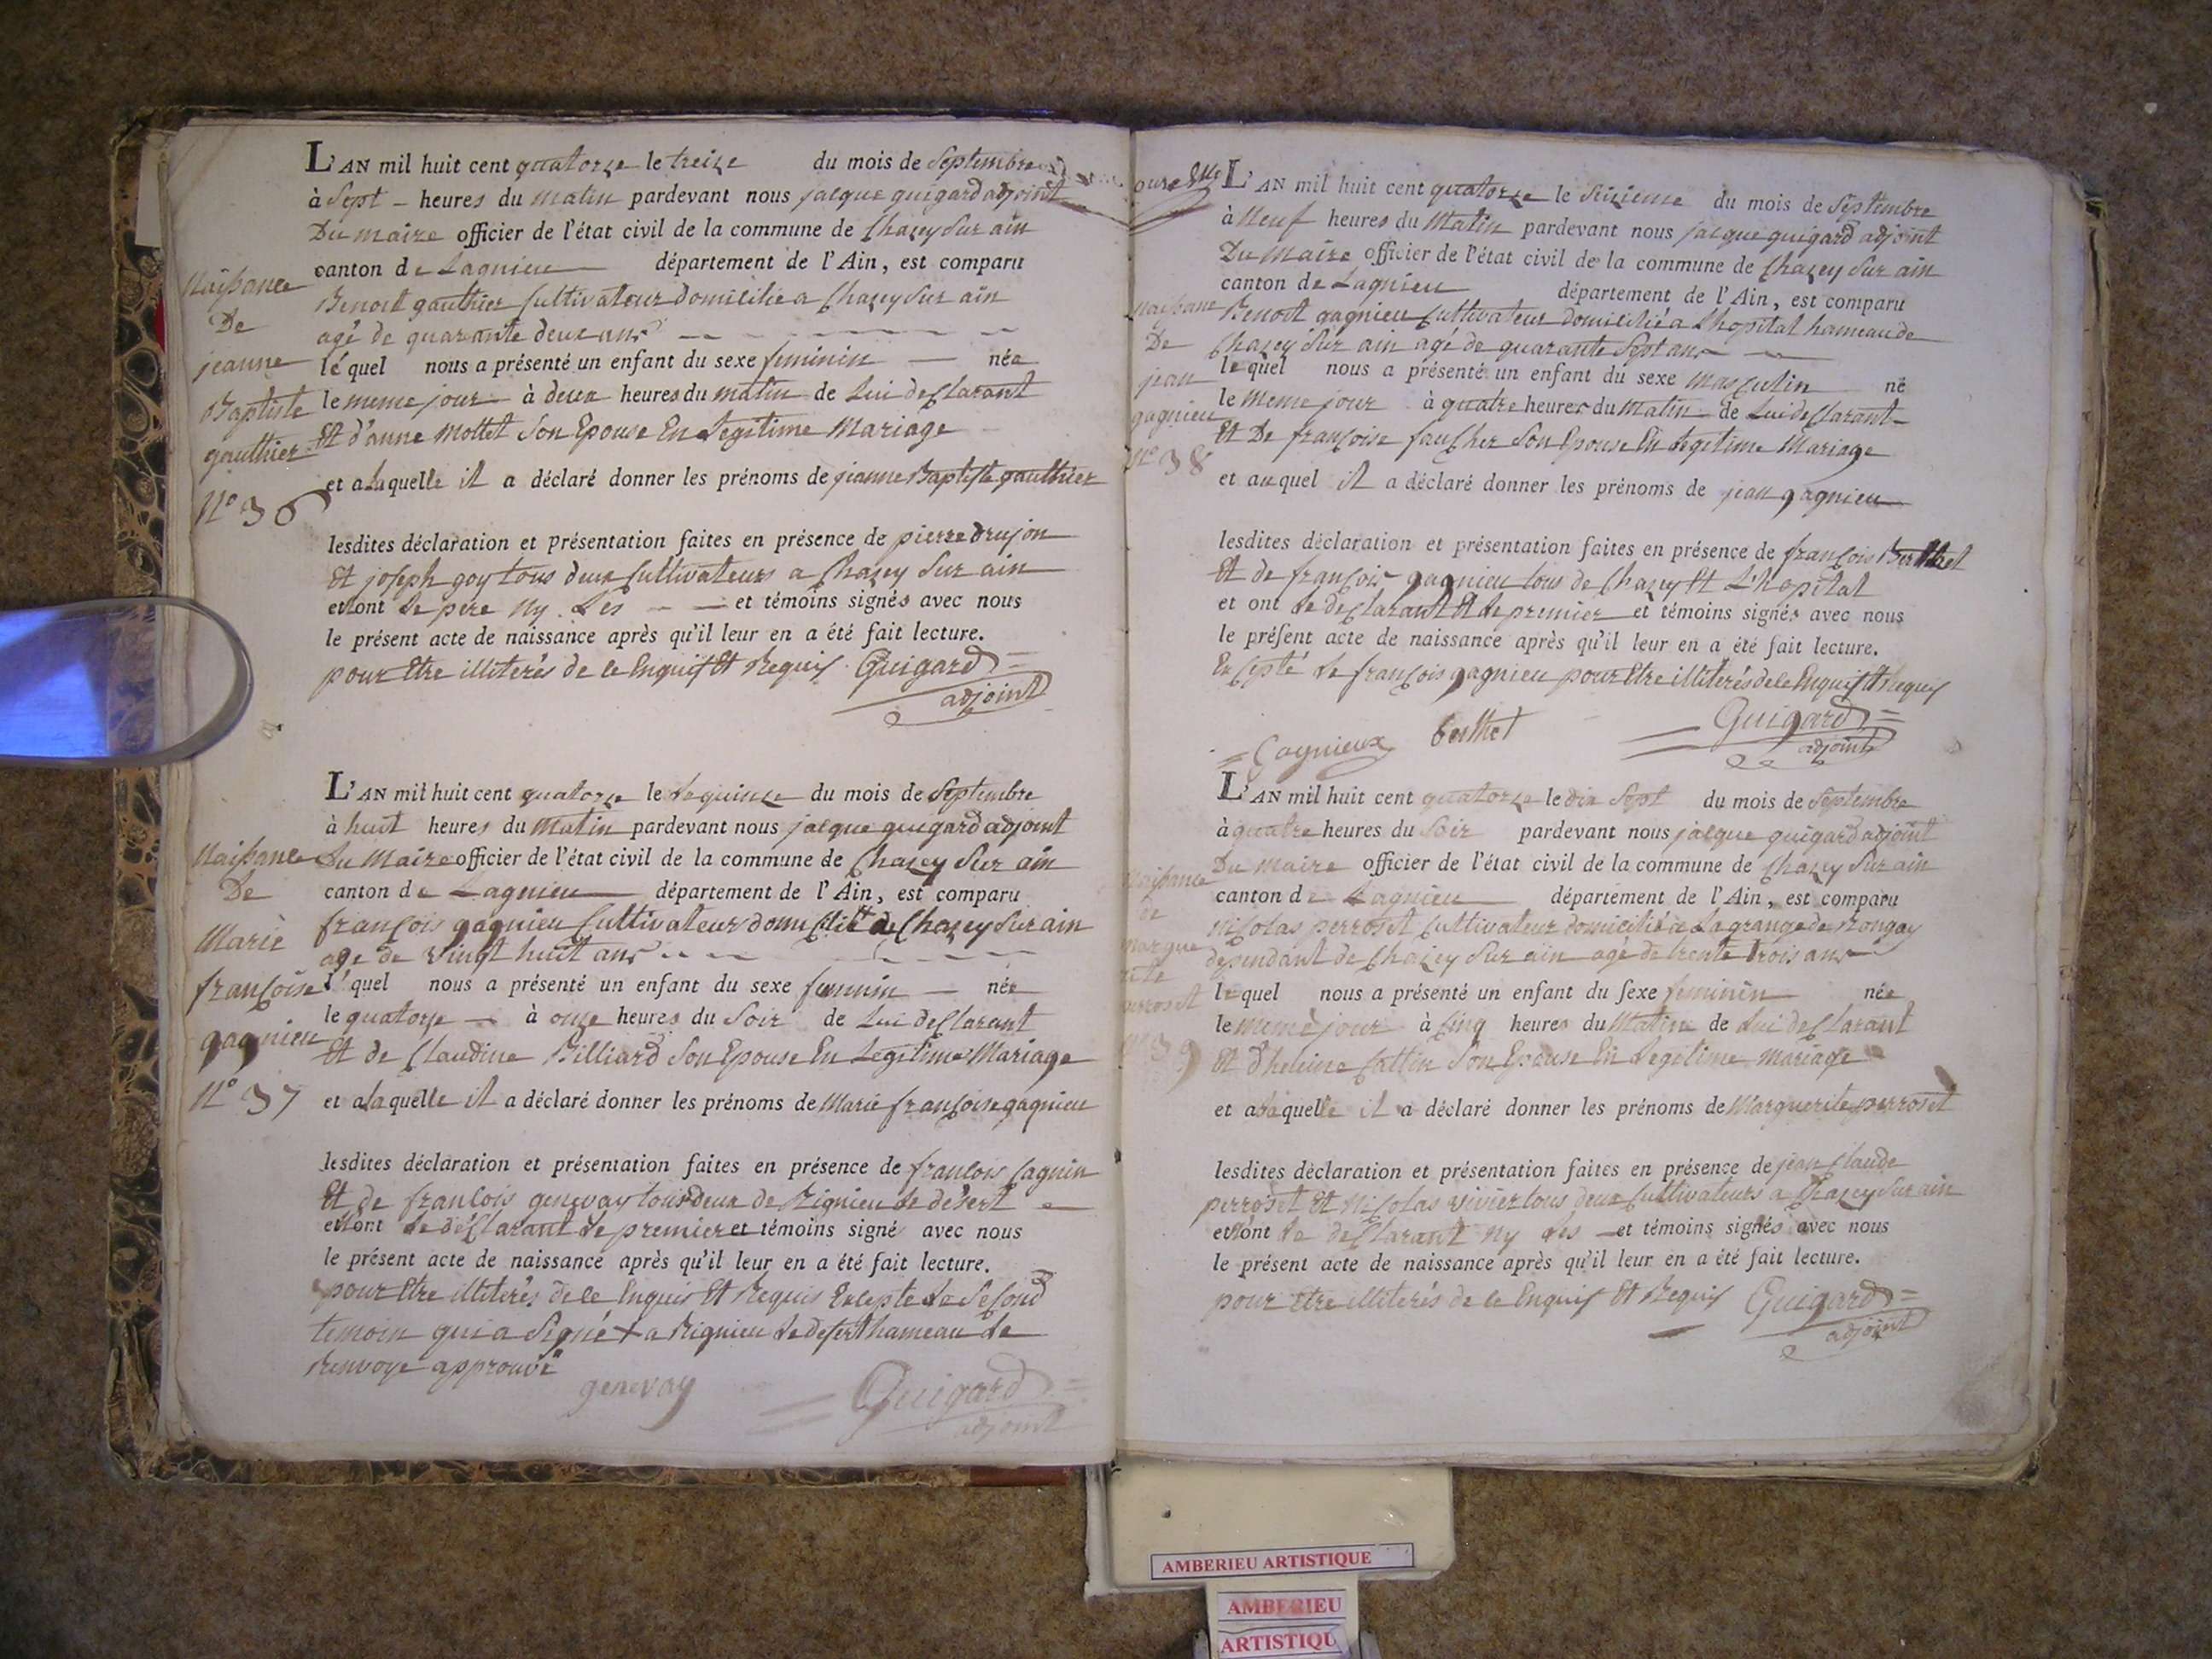 L'AN mil huit cent quatorze le treize du mois de Septembre
à Sept heures du matin pardevant nous jacque guigard adjoint
Du maire officier de l'état civil de la commune de Chazey Sur ain
canton de Lagnieu département de l'Ain, est comparu
Benoit gauthier Cultivateur domicilié a Chazey Sur ain
agé de quarante deux ans
lequel nous a présenté un enfant du sexe feminin née
le meme jour à deux heures du matin de Lui declarant
Et d'anne Mottet Son Epouse En Legitime Mariage
et a laquelle il a déclaré donner les prénoms de jeanne Baptiste gauthier
lesdites déclaration et présentation faites en présence de pierre drujon
Et joseph goy tous deux Cultivateurs a Chazey Sur ain
et ont Le pere Ny Les et témoins signés avec nous
le présent acte de naissance après qu'il leur en a été fait lecture.
pour Etre illiterés de ce Enquis Et Requis Guigard
adjoint
Naissance
De
jeanne
Baptiste
gauthier
N° 36
L'AN mil huit cent quatorze le Le quinze du mois de Septembre
à huit heures du Matin pardevant nous jacque guigard adjoint
Du Maire officier de l'état civil de la commune de Chazey Sur ain
canton de Lagnieu département de l'Ain, est comparu
françois gagnieu Cultivateur de Chazey Sur ain
age de vingt huit ans
l'quel nous a présenté un enfant du sexe feminin née
le quatorze à onze heures du Soir de Lui declarant
Et de Claudine Billiard Son Epouse En Legitime Mariage
et a laquelle il a déclaré donner les prénoms de Marie françoise gagnieu
lesdites déclaration et présentation faites en présence de francois Cagnin
Et de francois genevay tous deux de Rignieu Le desert
et ont Le declarant Le premier et témoins signé avec nous
le présent acte de naissance après qu'il leur en a été fait lecture.
pour Etre illiterés de ce Enquis Et Requis Excepte Le Second
temoin qui a Signé + a Rignieu Le desert hameau de
Renvoye approuvé
genevay Guigard
adjoint
Naissance
De
Marie
françoise
gagnieu
N° 37
L'AN mil huit cent quatorze le Seizieme du mois de Septembre
à Neuf heures du Matin pardevant nous jacque guigard adjoint
Du Maire officier de l'état civil de la commune de Chazey Sur ain
canton de Lagnieu département de l'Ain, est comparu
Benoit gagnieu Cultivateur domicilié a Lhopital hameau de
Chazey Sur ain agé de quarante Sept ans
lequel nous a présenté un enfant du sexe Masculin né
le Meme jour à quatre heures du Matin de Lui declarant
Et De françoise faucher Son Epouse En Legitime Mariage
et auquel il a déclaré donner les prénoms de jean gagnieu
lesdites déclaration et présentation faites en présence de françois Berthet
Et de françois gagnieu tous de Chazey Et L'hopital
et ont Le declarant Et Le premier et témoins signés avec nous
le présent acte de naissance après qu'il leur en a été fait lecture.
Excepté Le françois gagnieu pour Etre illiterés de ce Enquis Et Requis
Gagnieux berthet Guigard
adjoint
Naissance
De
jean
gagnieu
N° 38
L'AN mil huit cent quatorze le dix Sept du mois de Septembre
à quatre heures du Soir pardevant nous jacque guigard adjoint
Du maire officier de l'état civil de la commune de Chazey Sur ain
canton de Lagnieu département de l'Ain, est comparu
Nicolas perroset Cultivateur domicilié a La grange de Rongay
dépendant de Chazey Sur ain agé de trente trois ans
lequel nous a présenté un enfant du sexe feminin née
le meme jour à Cinq heures du Matin de Lui declarant
Et D'heleine Cattin Son Epouse En Legitime Mariage
et a laquelle il a déclaré donner les prénoms de Marguerite perroset
lesdites déclaration et présentation faites en présence de jean Claude
perroset Et Nicolas vivier tous deux Cultivateurs a Chazey Sur ain
et ont Le declarant Ny Les et témoins signés avec nous
le présent acte de naissance après qu'il leur en a été fait lecture.
pour Etre illiterés de ce Enquis Et Requis Guigard
adjoint
Naissance
de
Margue
rite
perroset
N° 39
AMBERIEU ARTISTIQUE
AMBERIEU
ARTISTIQU